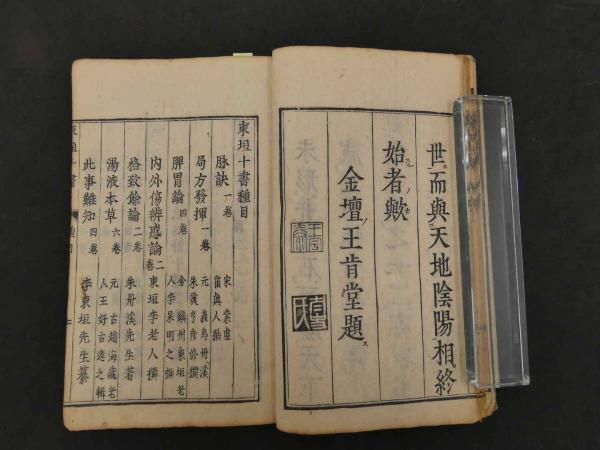 世而與天地陰陽相終
始者歟
金壇王肯堂題
東垣十書種目
脉訣一卷
宋紫虛
崔眞人撰
局方發揮一卷
元義烏丹溪
朱彥脩撰
脾胃論四卷
金鎮州東垣老
人李杲明之撰
內外傷辨惑論二卷
東垣李老人撰
格致餘論二卷
朱丹溪先生著
湯液本草六卷
元古趙海藏老
人王好古進之輯
此事難知四卷
李東垣先生纂
東垣十書